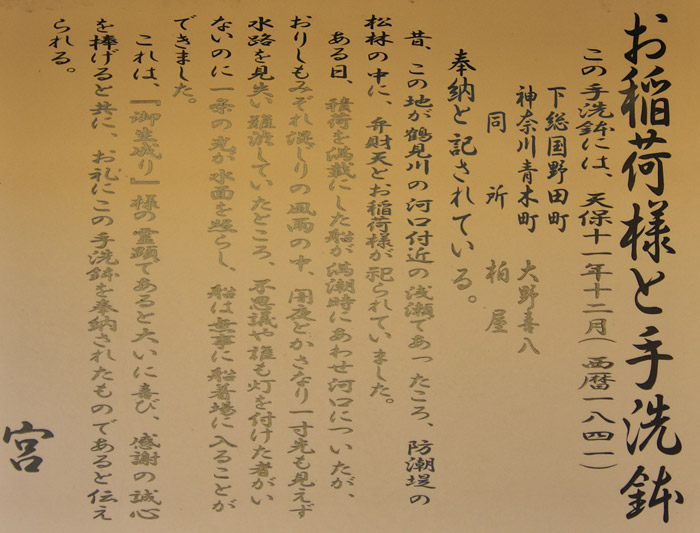 お稲荷様と手洗鉢
この手洗鉢には、天保十一年十二月(西暦一八四一)
下総国野田町
神奈川青木町　大野喜八
同所　柏屋
奉納と記されている。
昔、この地が鶴見川の河口付近の浅瀬であったころ、防潮堤の
松林の中に、弁財天とお稲荷様が祀られていました。
ある日、積荷を満載にした船が満潮時にあわせ河口についたが、
おりしもみぞれ混じりの風雨の中、闇夜とかさなり一寸先も見えず
水路を見失い難渋していたところ、不思議や誰も灯を付けた者がい
ないのに一条の光が水面を照らし、船は無事に船着場に入ることが
できました。
これは、『御生成り』様の霊顕であると大いに喜び、感謝の誠心
を捧げると共に、お礼にこの手洗鉢を奉納されたものであると伝え
られる。
宮